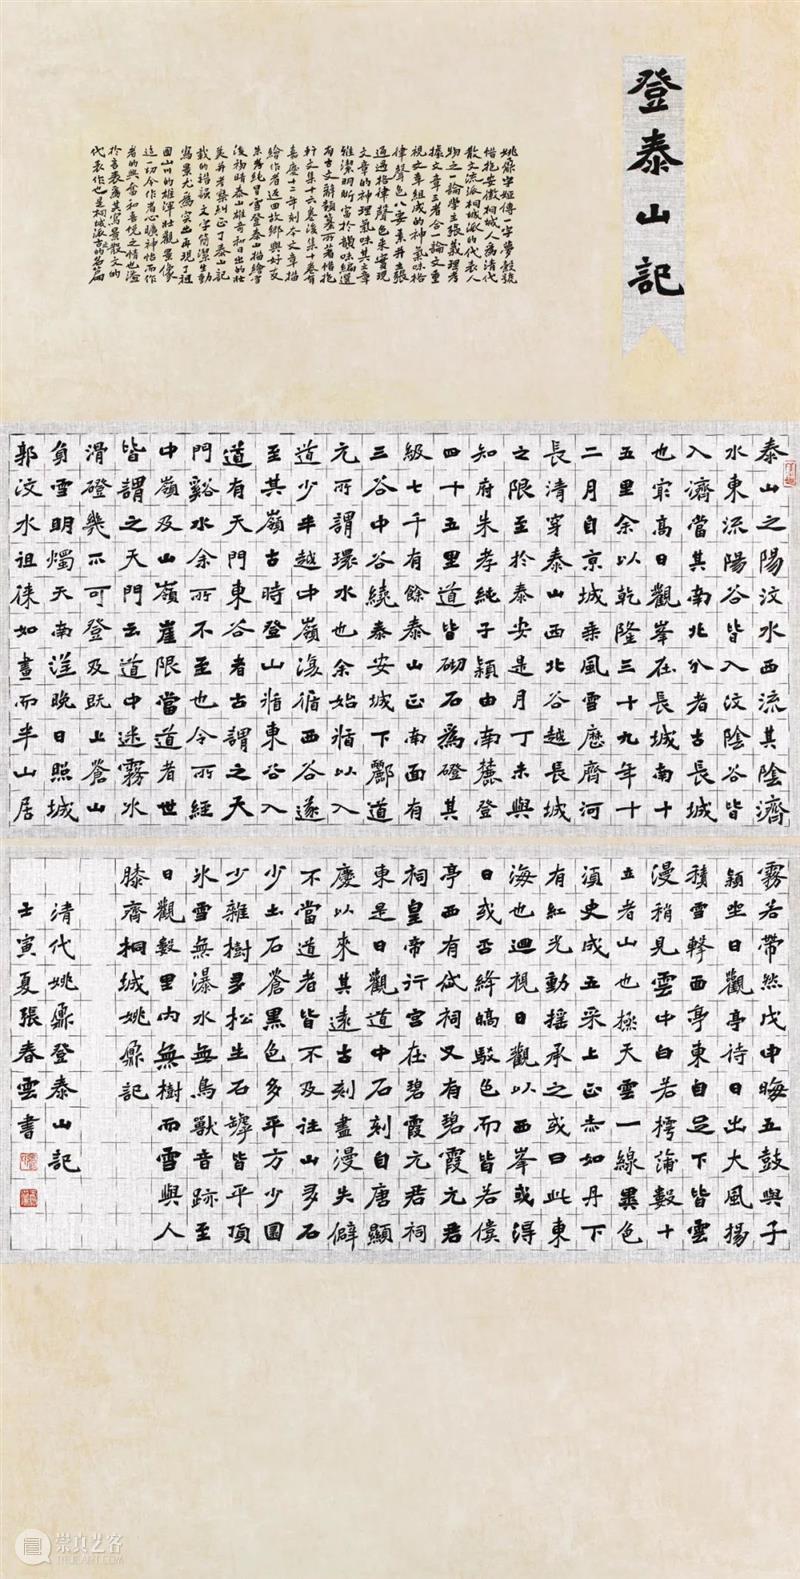 登泰山記
姚鼐字姬傳一字夢穀號
惜抱安徽桐城人爲清代
散文流派桐城派的代表人
物之一論學主張義理考
據文章三者合一論文重
視文章組成的神氣味格
律聲色八要素并主張
通過格律聲色來實現
文章的神理氣味其文章
雅潔明昕富於韻味編選
有古文辭類纂所著惜抱
軒文集十六卷後集十卷有
嘉慶十二年刻本文章描
繪作者返回故鄉與好友
朱孝純冒雪登泰山描繪雪
後初晴泰山雄奇和日出的壯
美并考察糾正了泰山記
載的錯誤文字簡潔生動
寫景尤爲突出再現了祖
國山川的雄渾壯觀景像
這一切令作者心曠神怡而作
者的興奮和喜悅之情也溢
於言表爲其寫景散文的
代表作也是桐城派古文的名篇
泰山之陽汶水西流其陰濟
水東流陽谷皆入汶陰谷皆
入濟當其南北分者古長城
也冣高日觀峯在長城南十
五里余以乾隆三十九年十
二月自京城乘風雪歷齊河
長清穿泰山西北谷越長城
之限至於泰安是月丁未與
知府朱孝純子潁由南麓登
四十五里道皆砌石爲磴其
級七千有餘泰山正南面有
三谷中谷繞泰安城下酈道
元所謂環水也余始循以入
道少半越中嶺復循西谷遂
至其嶺古時登山循東谷入
道有天門東谷者古謂之天
門谿水余所不至也今所經
中嶺及山嶺崖限當道者世
皆謂之天門云道中迷霧冰
滑磴幾不可登及既上蒼山
負雪明燭天南望晚日照城
郭汶水徂徠如畫而半山居
霧若帶然戊申晦五鼓與子
潁坐日觀亭待日出大風揚
積雪擊面亭東自足下皆雲
漫稍見雲中白若樗蒱數十
立者山也極天雲一線異色
須臾成五采上正赤如丹下
有紅光動搖承之或曰此東
海也迴視日觀以西峯或得
日或否絳皜駁色而皆若僂
亭西有岱祠又有碧霞元君
祠皇帝行宮在碧霞元君祠
東是日觀道中石刻自唐顯
慶以來其遠古刻盡漫失僻
不當道者皆不及往山多石
少土石蒼黑色多平方少圜
少雜樹多松生石罅皆平頂
冰雪無瀑水無鳥獸音跡至
日觀數里內無樹而雪與人
膝齊桐城姚鼐記
清代姚鼐登泰山記
壬寅夏張春雲書
崇真艺客